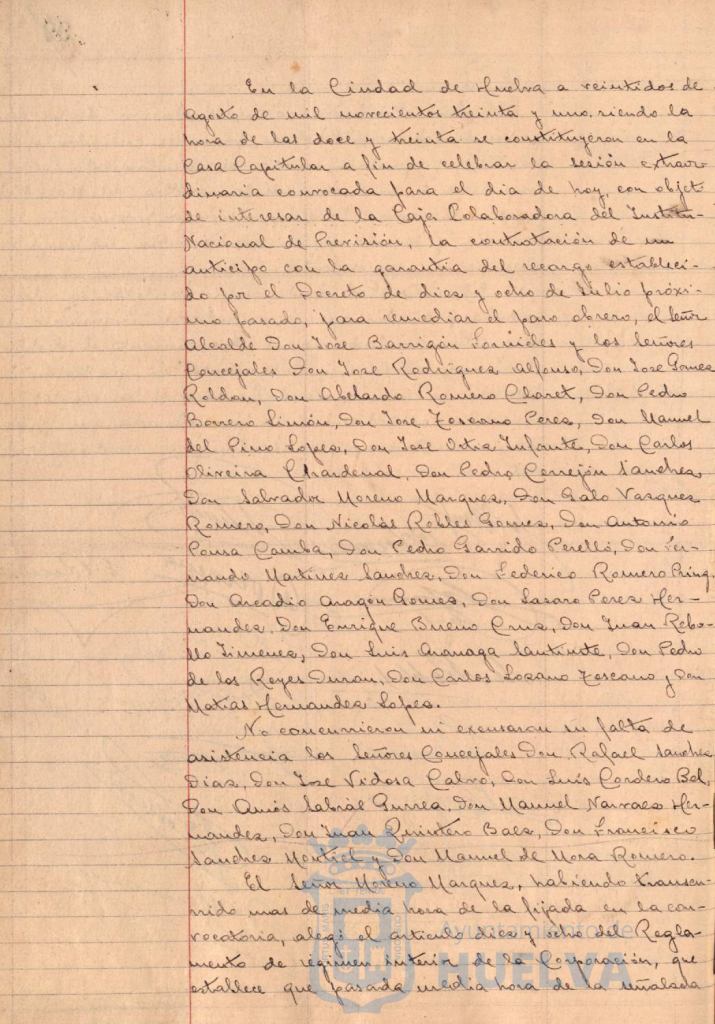 En la Ciudad de Huelva a veintidos de
Agosto de mil novecientos treinta y uno, siendo la
hora de las doce y treinta se constituyeron en la
Casa Capitular a fin de celebrar la sesión extraor-
dinaria convocada para el dia de hoy, con objet
de interesar de la Caja Colaboradora del Institu-
Nacional de Previsión, la contratación de un
anticipo con la garantia del recargo estableci-
do por el Decreto de diez y ocho de Julio próxi-
mo pasado, para remediar el paro obrero, el Señor
Alcalde Don Jose Barrigón Fornieles y los Señores
Concejales Don Jose Rodriguez Alfonso, Don Jose Gomez
Roldan, Don Abelardo Romero Claret, Don Pedro
Borrero Limón, Don Jose Toscano Perez, Don Manuel
del Pino Lopez, Don Jose Ostra Infante, Don Carlos
Oliveira Chardenal, Don Pedro Cerrejón Sanchez,
Don Salvador Moreno Marquez, Don Galo Vazquez
Romero, Don Nicolás Robles Gomez, Don Antonio
Ponsa Camba, Don Pedro Garrido Perelló, Don Fer-
nando Martinez Sanchez, Don Federico Romero Pring,
Don Arcadio Aragón Gomez, Don Lazaro Perez Her-
nandez, Don Enrique Bueno Cruz, Don Juan Rebo-
llo Jimenez, Don Luis Aranaga Santiuste, Don Pedro
de los Reyes Duran, Don Carlos Lozano Toscano y Don
Matias Hernandez Lopez.
No concurrieron ni excusaron su falta de
asistencia los Señores Concejales Don Rafael Sanchez
Diaz, Don Jose Vidosa Calvo, Don Luis Cordero Bel,
Don Amós Sabrás Gurrea, Don Manuel Narvaez Her-
nandez, Don Juan Quintero Baez, Don Francisco
Sanchez Montiel y Don Manuel de Mora Romero.
El Señor Moreno Marquez, habiendo transcu-
rrido mas de media hora de la fijada en la con-
vocatoria, alegó el articulo diez y ocho del Regla-
mento de régimen interior de la Corporación, que
establece que pasada media hora de la señalada
Ayuntamiento de
HUELVA